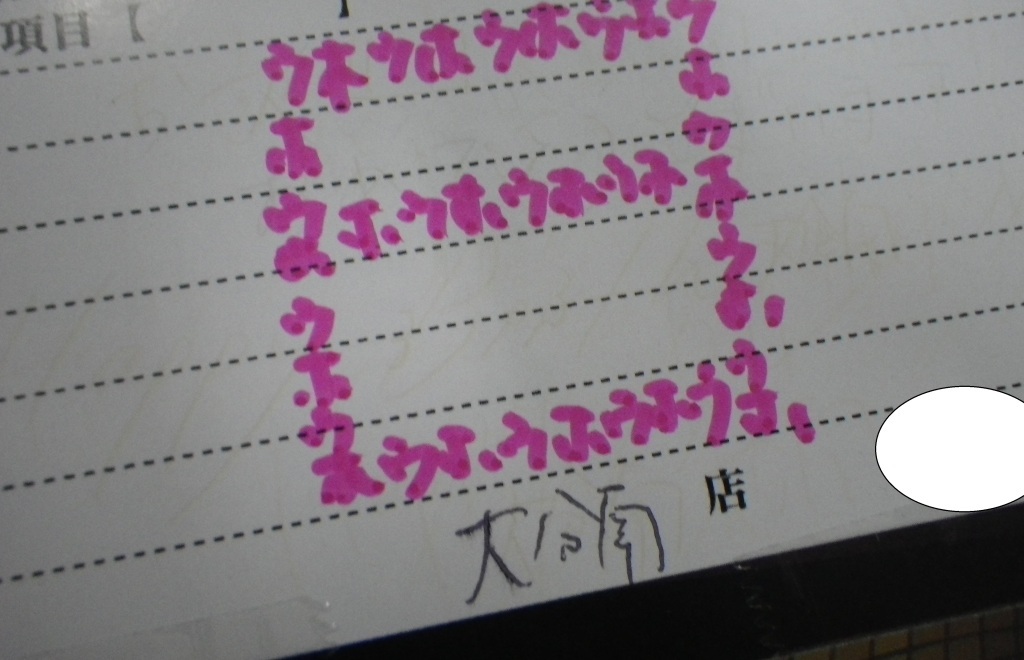 項目【 】
ウホウホウホウホウ
ホ ホ
ウ
ウホウホウホウホホ
ホ ウ
ウ ホ
ホ ウ
ウ
ホウホウホウホウホ
店